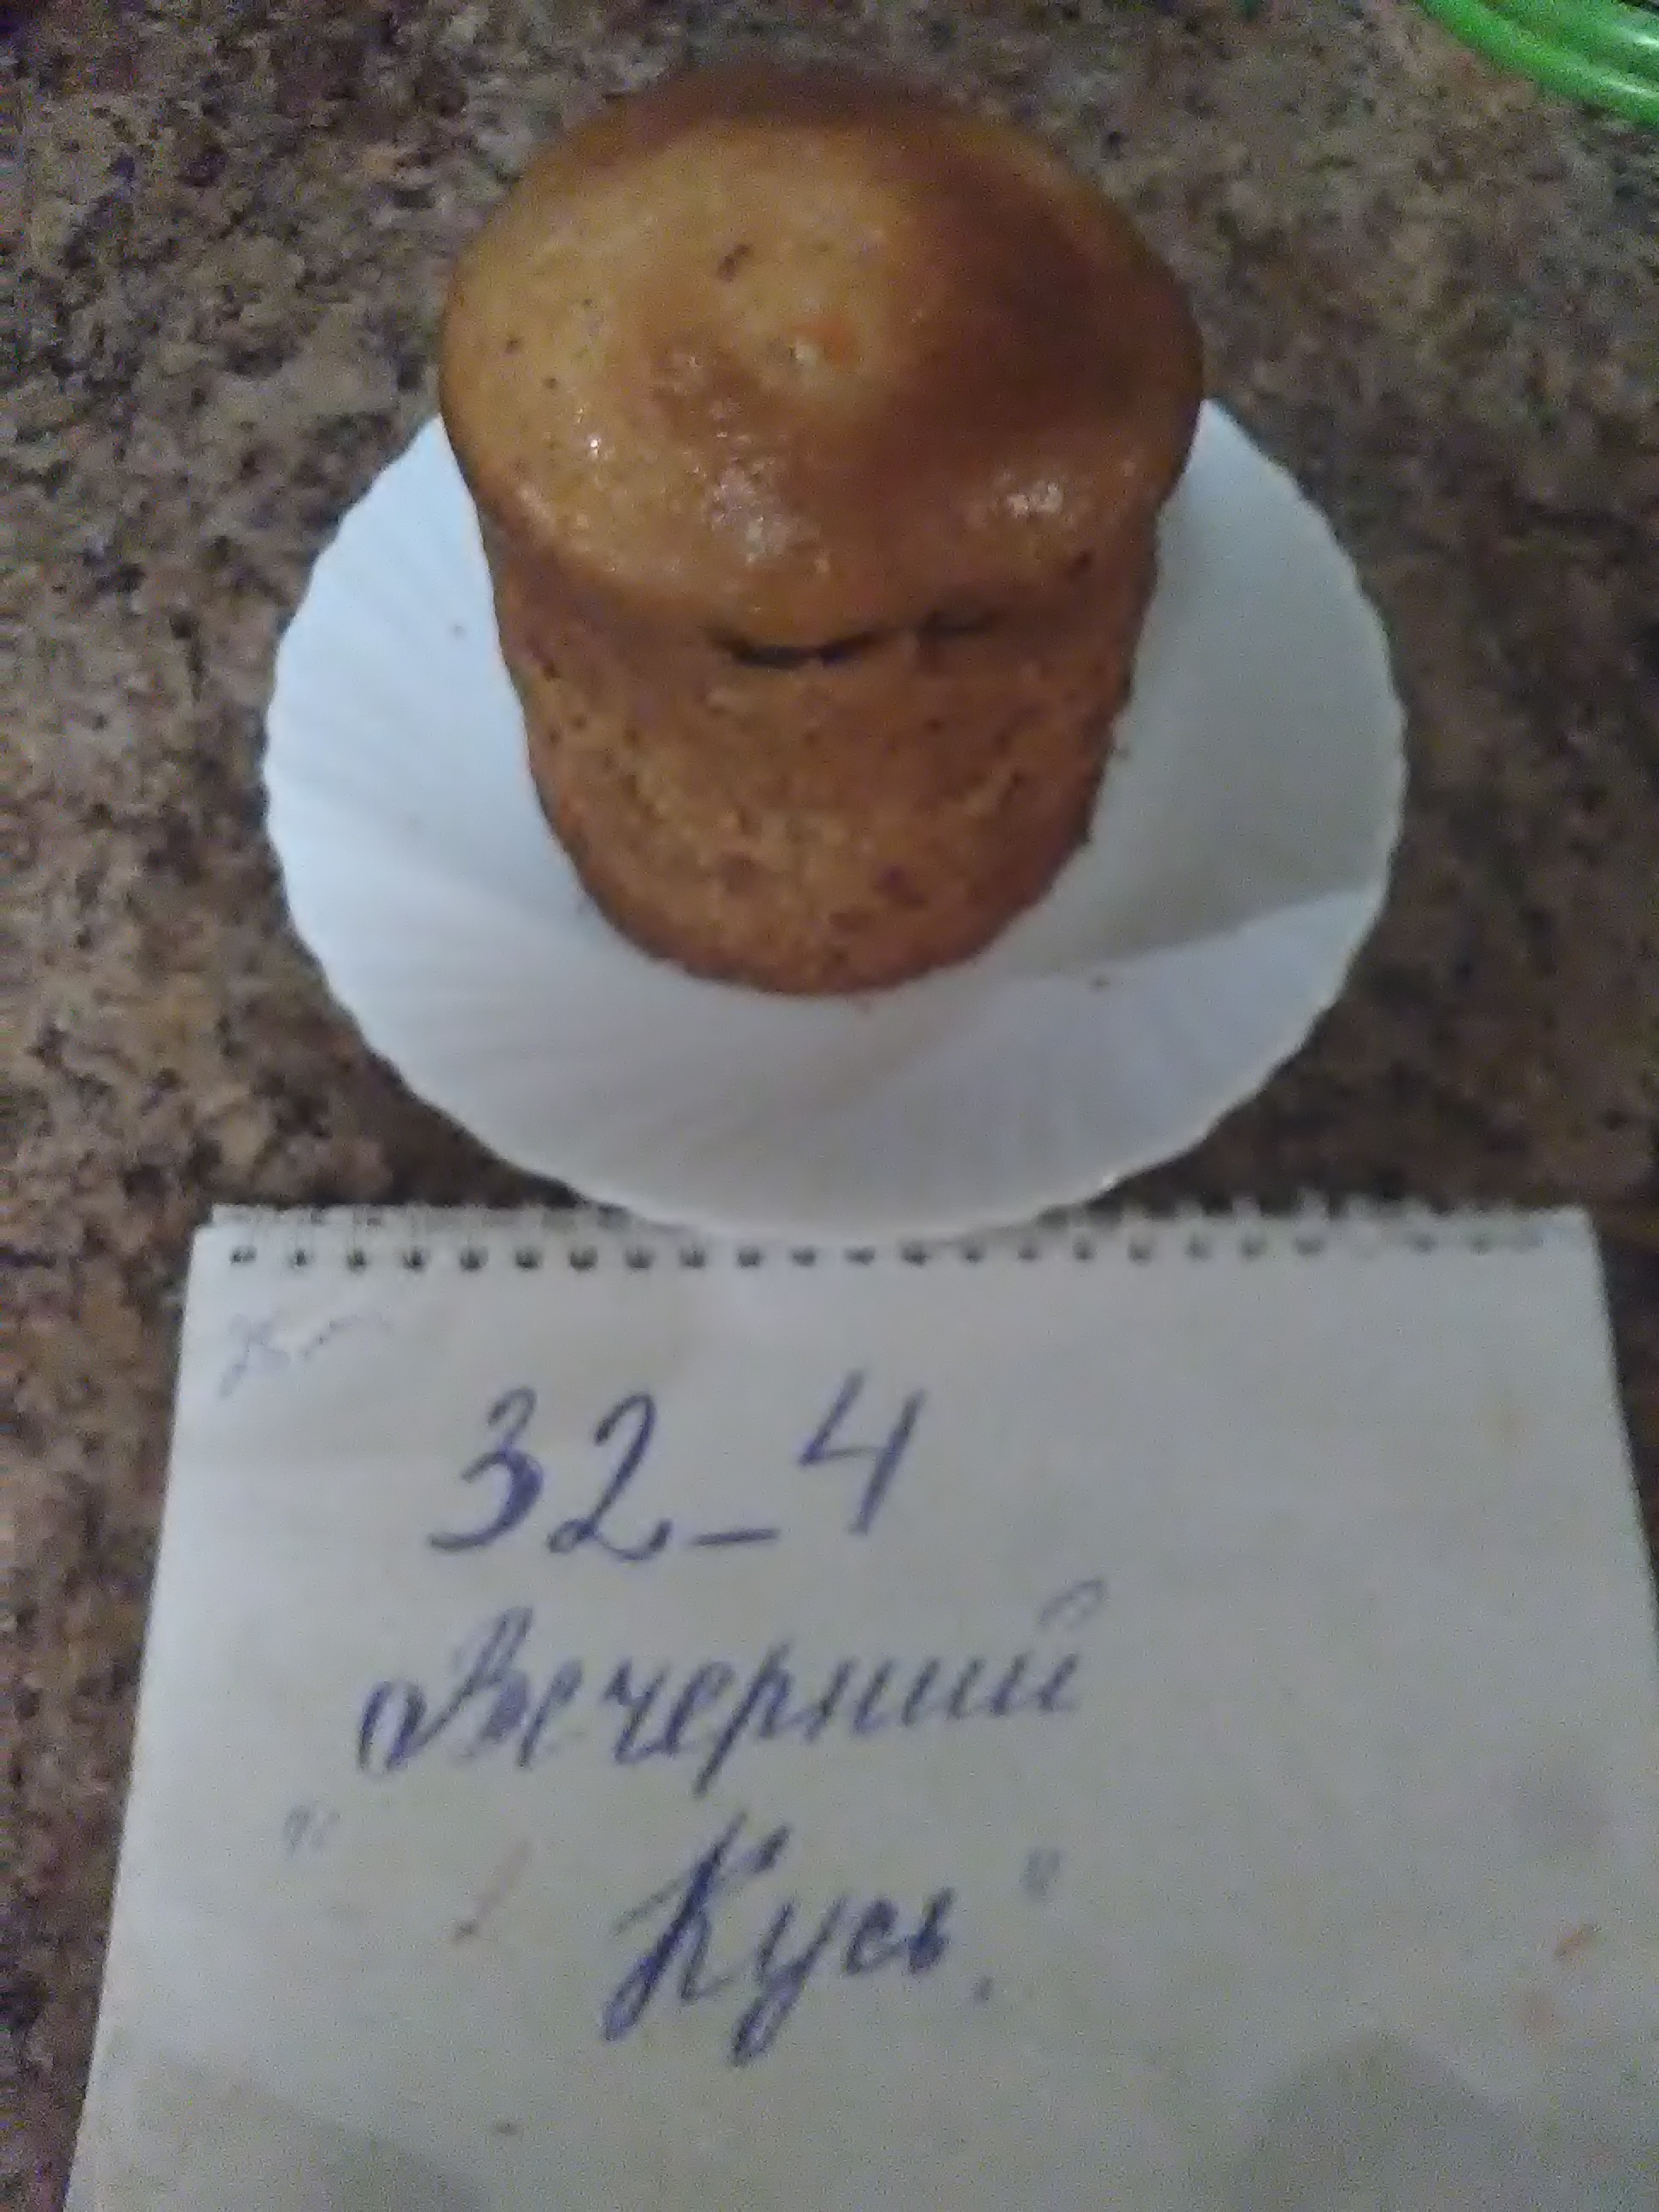 32_4
Вечерний
"Кусь."